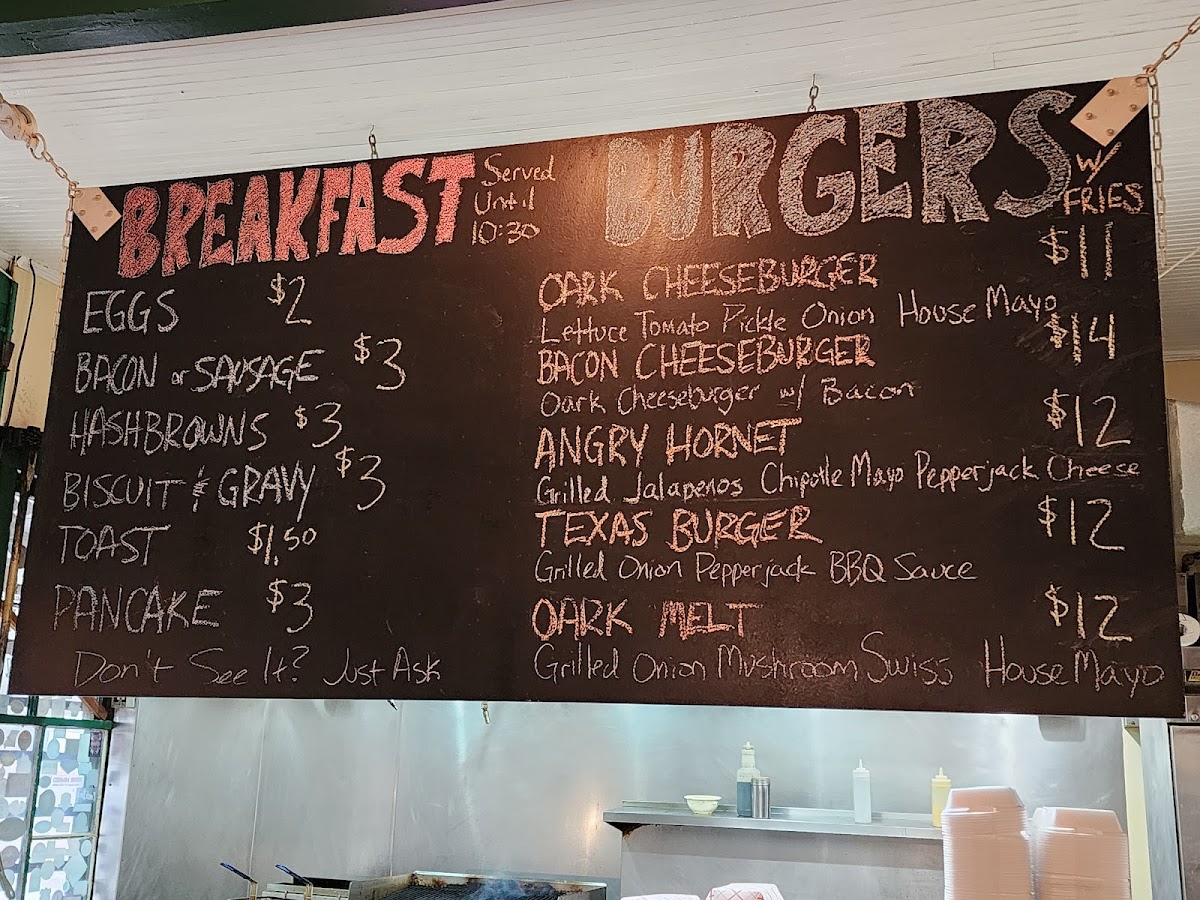 BREAKFAST
Served
Until
10:30
EGGS $2
BACON or SAUSAGE $3
HASHBROWNS $3
BISCUIT & GRAVY $3
TOAST $1.50
PANCAKE $3
Don't See It? Just Ask
BURGERS
w/
FRIES
OARK CHEESEBURGER $11
Lettuce Tomato Pickle Onion House Mayo
BACON CHEESEBURGER $14
Oark Cheeseburger w/ Bacon
ANGRY HORNET $12
Grilled Jalapenos Chipotle Mayo Pepperjack Cheese
TEXAS BURGER $12
Grilled Onion Pepperjack BBQ Sauce
OARK MELT $12
Grilled Onion Mushroom Swiss House Mayo